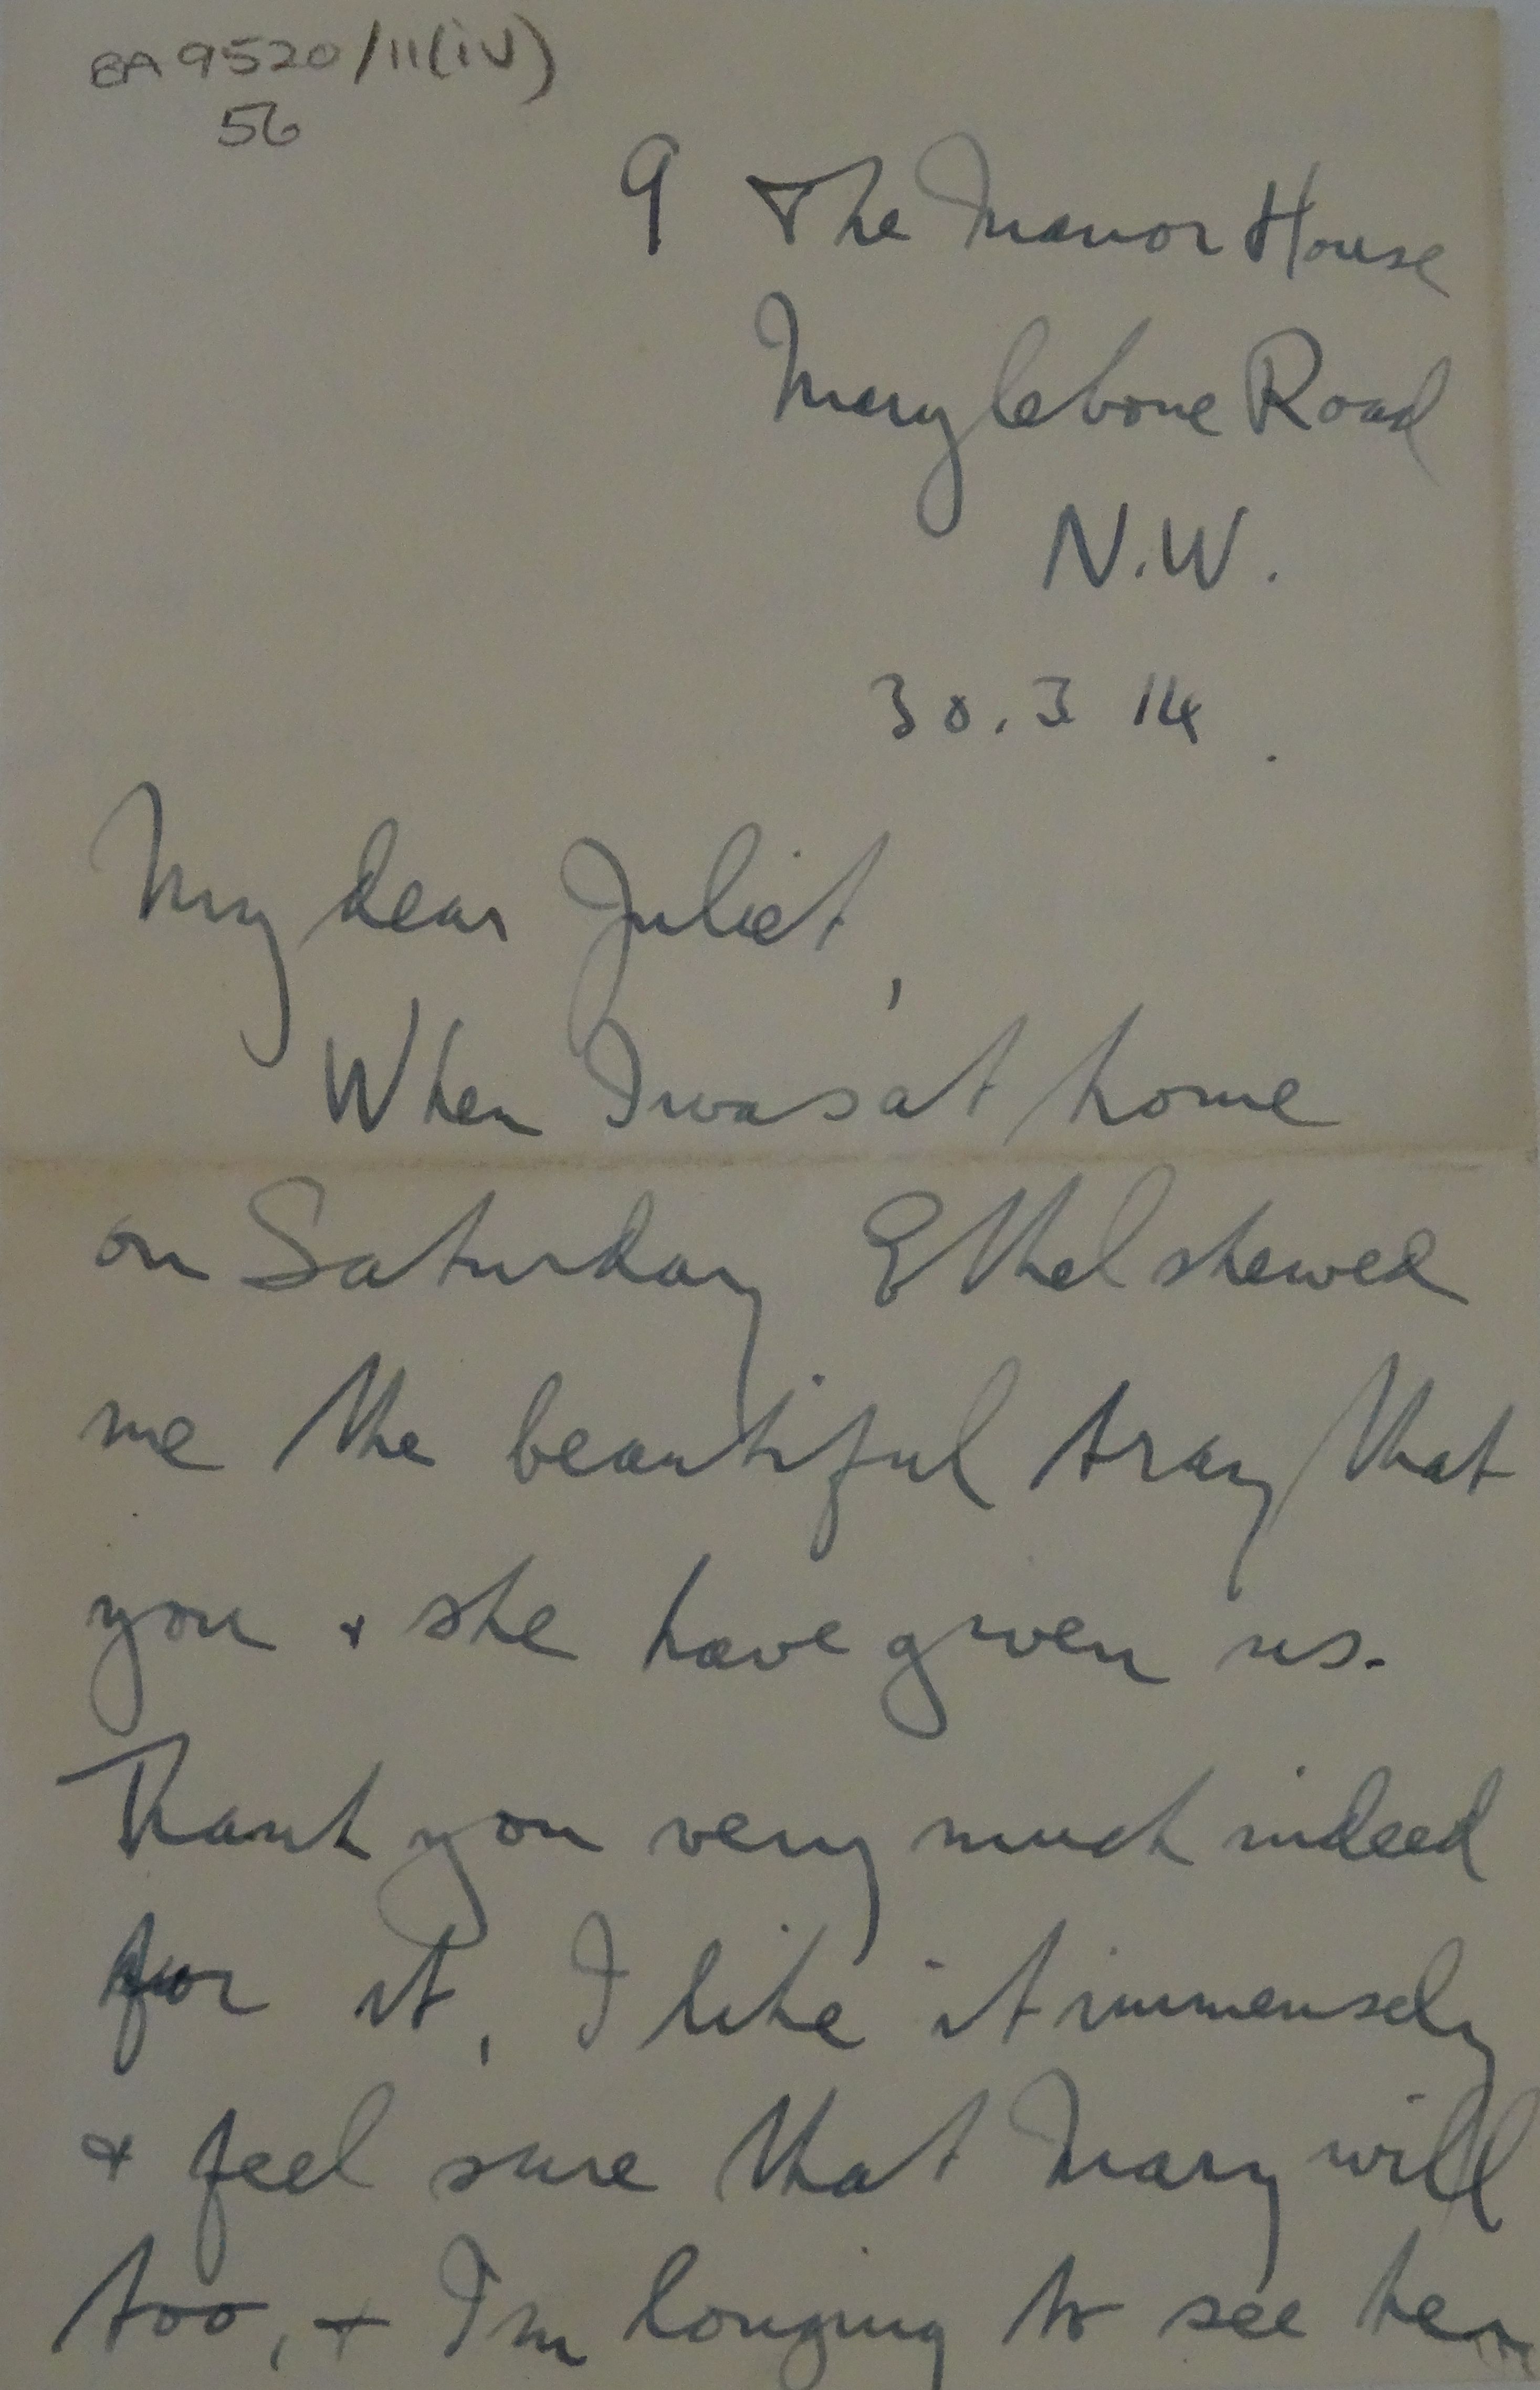 BA 9520/11(iv)
56
9 The Manor House
Marylebone Road
N.W.
30.3 14.
My dear Juliet,
When I was at home
on Saturday Ethel shewed
me the beautiful tray that
you & she have given us.
Thank you very much indeed
for it, I like it immensely
& feel sure that Mary will
too, & I'm longing to see her